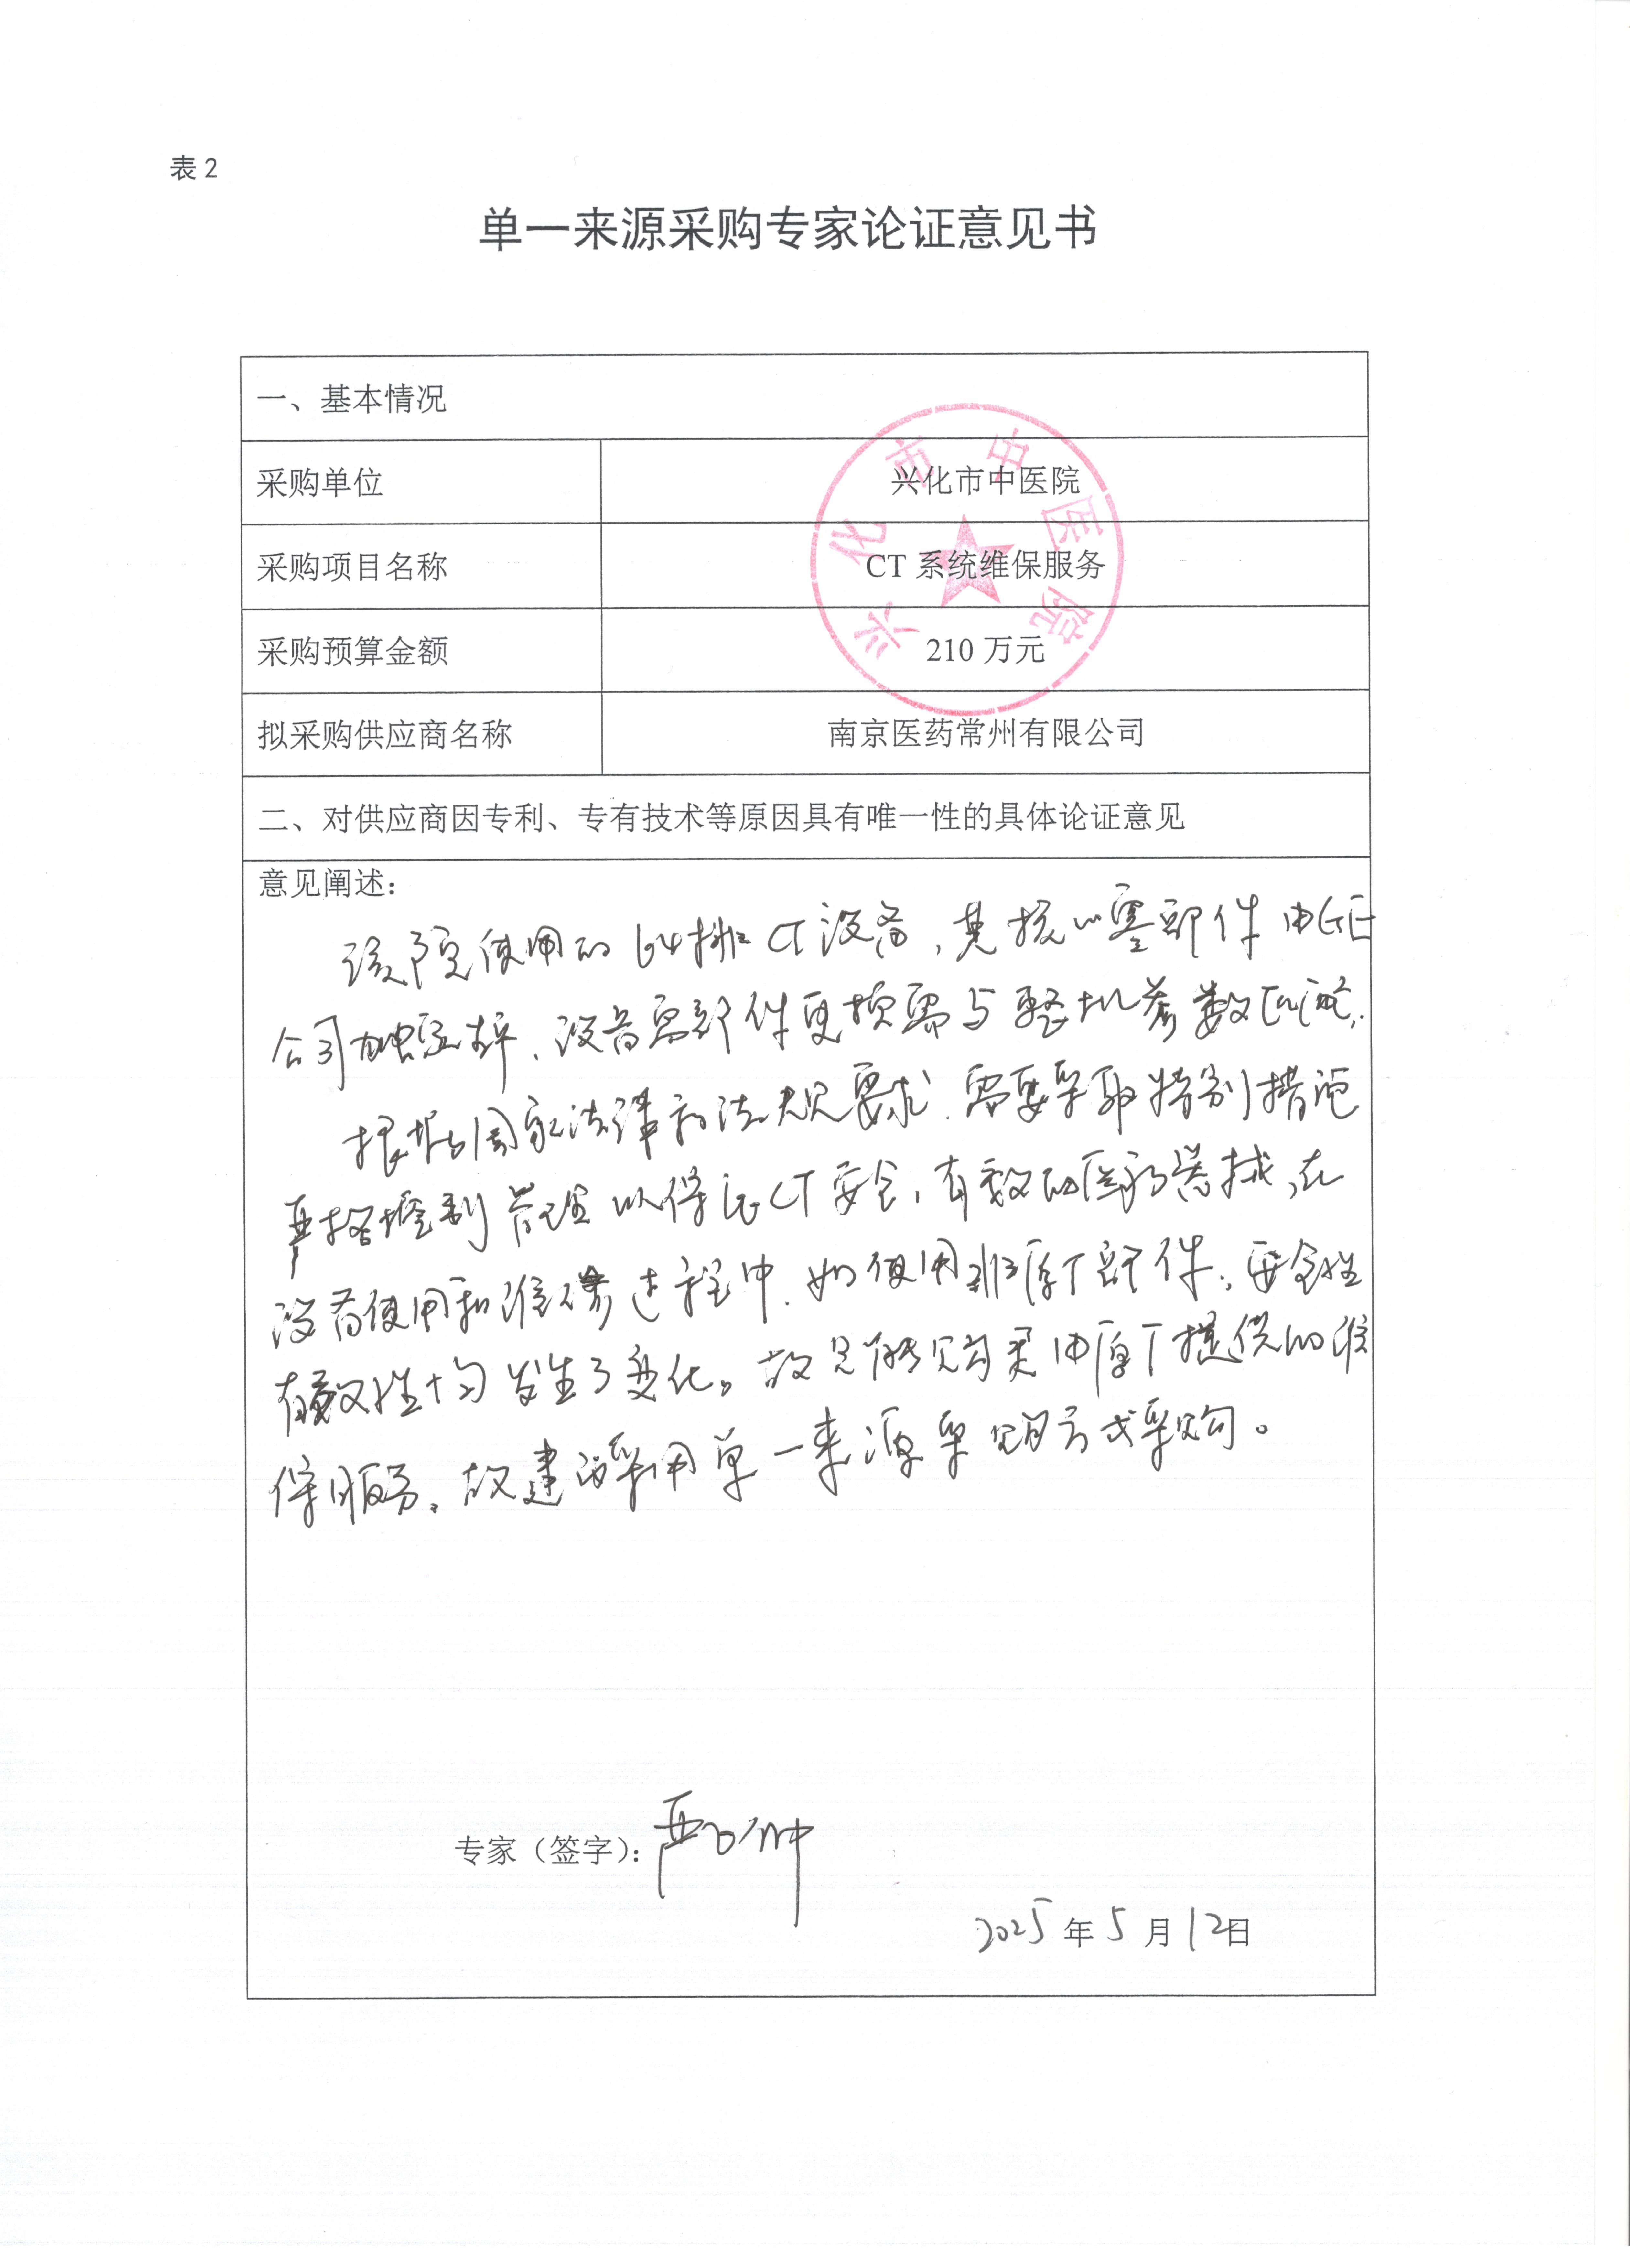 表 2
单一来源采购专家论证意见书
一、基本情况
采购单位
兴化市中医院
采购项目名称
CT 系统维保服务
采购预算金额
210 万元
拟采购供应商名称
南京医药常州有限公司
兴化市中医院
二、对供应商因专利、专有技术等原因具有唯一性的具体论证意见
意见阐述：
该院使用的64排CT设备，其核心零部件由GE
公司 设备零部件更换需与整机参数匹配，
根据国家法律和法规要求、需要采取特别措施
严格控制管理以保证CT安全，有效的医疗器械，在
设备使用和维修过程中，如使用非原厂部件，安全性
有效性均发生了变化。故只能购买由原厂提供的维
保服务。故建议采用单一来源采购方式采购。
专家（签字）：
2025 年 5 月 12 日